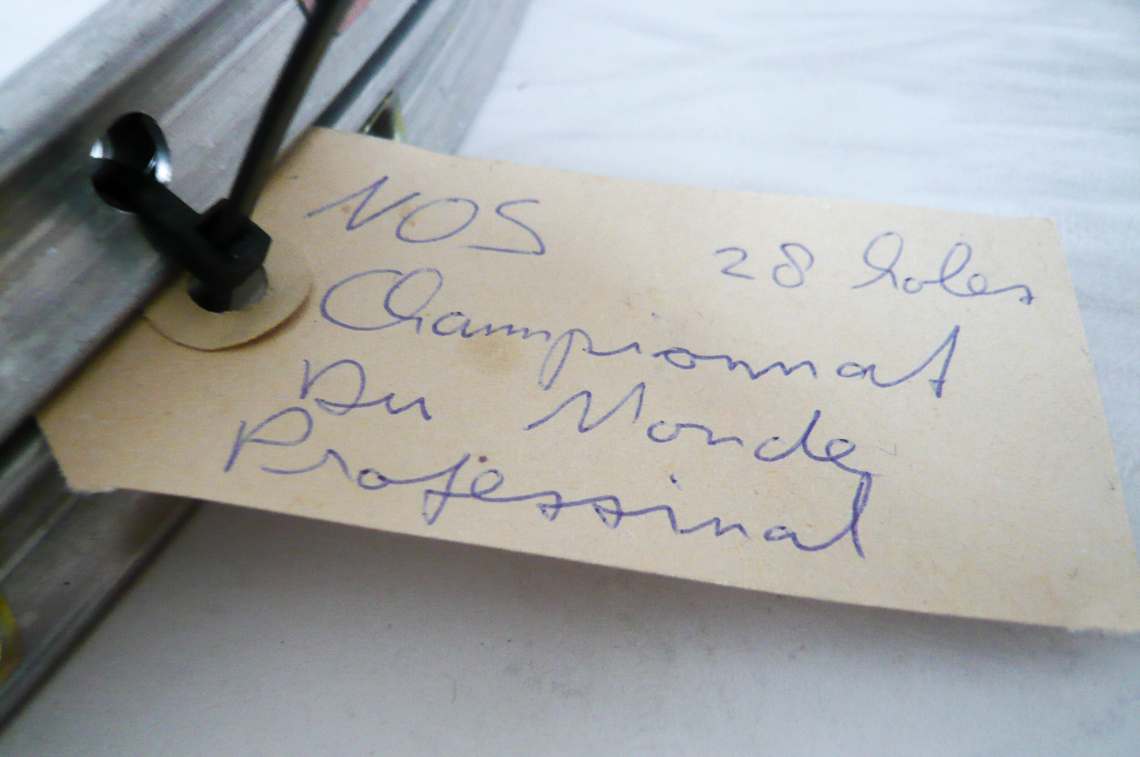 NOS 28 holes
Championnat
Du Monde
Professinal